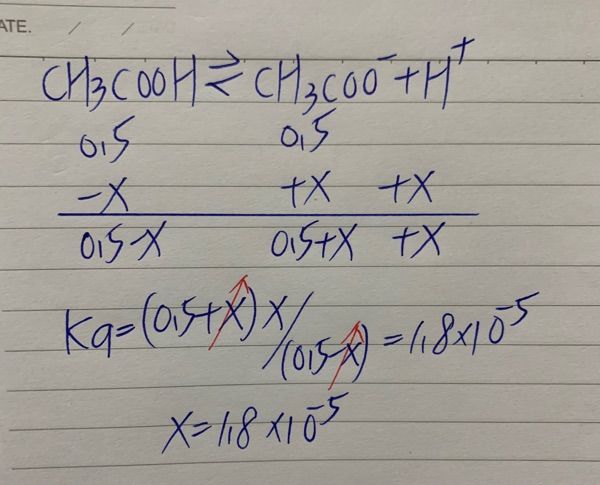 ATE. / /
CH3COOH⇌CH3COO⁻+H⁺
0,5 0,5
-X +X +X
0,5-X 0,5+X +X
Ka=(0,5+X)X/(0,5-X)=1,8×10⁻⁵
X=1,8×10⁻⁵